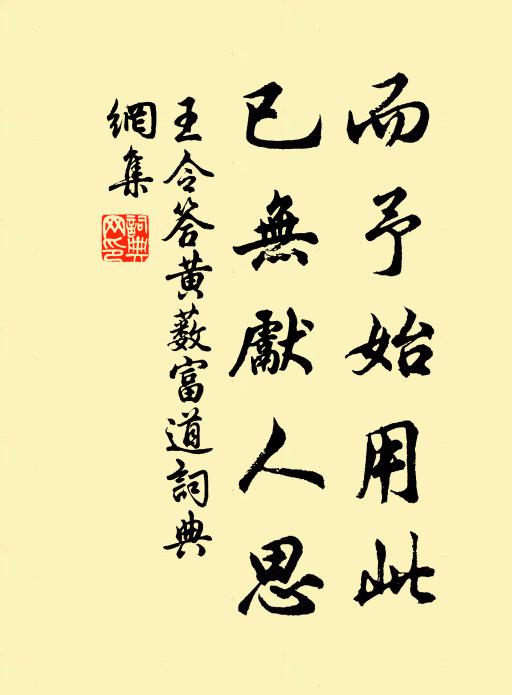 而予始用此
已無獻人思
王令答黄薮富道詞典
網集
詞典
网印